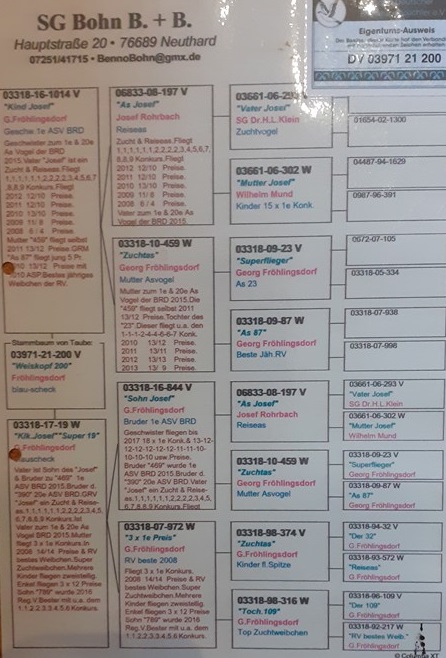 SG Bohn B. + B.
Hauptstraße 20 • 76689 Neuthard
07251/41715 • BennoBohn@gmx.de
Eigentums-Ausweis
DV 03971 21 200
03318-16-1014 V
"Kind Josef"
G.Fröhlingsdorf
Geschw. 1e ASV BRD
Geschwister zum 1e & 20e
As Vogel der BRD
2015.Vater "Josef" ist ein
Zucht & Reiseas.Fliegt
2012 12/10 Preise.
2011 12/10 Preise.
2010 13/10 Preise.
2009 11/ 8 Preise.
2008 6 / 4 Preise.
Mutter "459" fliegt selbst
2011 13/12 Preise.GRM
"As 87" fliegt jung 5 Pr.
2010 13/12 Preise mit
Weibchen der RV.
Stammbaum von Taube:
03971-21-200 V
"Weiskopf 200"
Fröhlingsdorf
blau-scheck
03318-17-19 W
"Klk.Josef""Super 19"
G.Fröhlingsdorf
Vater ist Sohn des "Josef"
& Bruder zu "469" 1e
ASV BRD 2015.Bruder d.
"390" 20e ASV BRD.GRV
"Josef" ein Zucht & Reise-
Vater zum 1e & 20e As
Vogel BRD 2015.Mutter
fliegt 3 x 1e Konkurs.In
2008 14/14 Preise & RV
bestes Weibchen.Super
Zuchtweibchen.Mehrere
Kinder fliegen zweistellig.
Enkel fliegen 3 x 12 Preise
Sohn "789" wurde 2016
Reg.V.Bester mit u.a. dem
06833-08-197 V
"As Josef"
Josef Rohrbach
Reiseas
Zucht & Reiseas.Fliegt
2012 12/10 Preise.
2011 12/10 Preise.
2010 13/10 Preise.
2009 11/ 8 Preise.
2008 6 / 4 Preise.
Vater zum 1e & 20e As
Vogel der BRD 2015.
03318-10-459 W
"Zuchtas"
Georg Fröhlingsdorf
Mutter Asvogel
Mutter zum 1e & 20e As
Vogel der BRD 2015.Die
"459" fliegt selbst 2011
13/12 Preise.Tochter des
"23".Dieser fliegt u.a. den
1-1-1-2-4-4-6-6-7 Konk.
2010 13/12 Preise.
2011 13/11 Preise.
2012 13/13 Preise.
2013 13/ 9 Preise.
03318-16-844 V
"Sohn Josef"
G.Fröhlingsdorf
Bruder 1e ASV BRD
Geschwister fliegen bis
2017 18 x 1e Konk.& 13-12-
12-12-12-12-12-11-11-10-
10-10-10 usw.Preise.
Bruder "469" wurde 1e
ASV BRD 2015.Bruder d.
"390" 20e ASV BRD.Vater
"Josef" ein Zucht & Reise-
03318-07-972 W
"3 x 1e Preis"
G.Fröhlingsdorf
RV beste 2008
Fliegt 3 x 1e Konkurs.In
2008 14/14 Preise & RV
bestes Weibchen.Super
Zuchtweibchen.Mehrere
Kinder fliegen zweistellig.
Enkel fliegen 3 x 12 Preise
Sohn "789" wurde 2016
Reg.V.Bester mit u.a. dem
1.1.2.2.3.3.4.5.6 Konkurs.
"Vater Josef"
SG Dr.H.L.Klein
Zuchtvogel
03661-06-302 W
"Mutter Josef"
Wilhelm Mund
Kinder 15 x 1e Konk.
03318-09-23 V
"Superflieger"
Georg Fröhlingsdorf
As 23
03318-09-87 W
"As 87"
Georg Fröhlingsdorf
Beste Jäh.RV
06833-08-197 V
"As Josef"
Josef Rohrbach
Reiseas
03318-10-459 W
"Zuchtas"
Georg Fröhlingsdorf
Mutter Asvogel
03318-98-374 V
"Zuchtas"
G.Fröhlingsdorf
Kinder fl.Spitze
03318-98-316 W
"Toch.109"
G.Fröhlingsdorf
Top Zuchtweibchen
01654-02-1300
04487-94-1629
0987-96-391
0972-07-105
03318-05-334
03318-07-938
03318-07-998
03661-06-293 V
"Vater Josef"
SG Dr.H.L.Klein
03661-06-302 W
"Mutter Josef"
Wilhelm Mund
03318-09-23 V
"Superflieger"
Georg Fröhlingsdorf
03318-09-87 W
"As 87"
Georg Fröhlingsdorf
03318-94-32 V
"Der 32"
G.Fröhlingsdorf
03318-93-572 W
"Reiseas"
G.Fröhlingsdorf
03318-96-109 V
"Der 109"
G.Fröhlingsdorf
03318-92-217 W
"RV bestes Weib."
G.Fröhlingsdorf